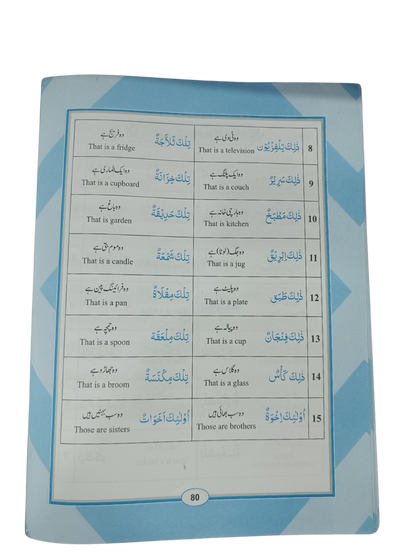 8
ذٰلِكَ تِلْفِزِيُوْن
وہ ٹی وی ہے
That is a television
تِلْكَ ثَلَّاجَةٌ
وہ فریج ہے
That is a fridge
9
ذٰلِكَ سَرِيْرٌ
وہ ایک پلنگ ہے
That is a couch
تِلْكَ خِزَانَةٌ
وہ ایک الماری ہے
That is a cupboard
10
ذٰلِكَ مَطْبَخٌ
وہ باورچی خانہ ہے
That is kitchen
تِلْكَ حَدِيْقَةٌ
وہ باغ ہے
That is garden
11
ذٰلِكَ اِبْرِيْقٌ
وہ جگ (لوٹا) ہے
That is a jug
تِلْكَ شَمْعَةٌ
وہ موم بتی ہے
That is a candle
12
ذٰلِكَ طَبَقٌ
وہ پلیٹ ہے
That is a plate
تِلْكَ مِقْلَاةٌ
وہ فرائینگ پین ہے
That is a pan
13
ذٰلِكَ فِنْجَانٌ
وہ پیالہ ہے
That is a cup
تِلْكَ مِلْعَقَةٌ
وہ چمچہ ہے
That is a spoon
14
ذٰلِكَ كَأْسٌ
وہ گلاس ہے
That is a glass
تِلْكَ مِكْنَسَةٌ
وہ جھاڑو ہے
That is a broom
15
اُولٰئِكَ اِخْوَةٌ
وہ سب بھائی ہیں
Those are brothers
اُولٰئِكَ اَخَوَاتٌ
وہ سب بہنیں ہیں
Those are sisters
80